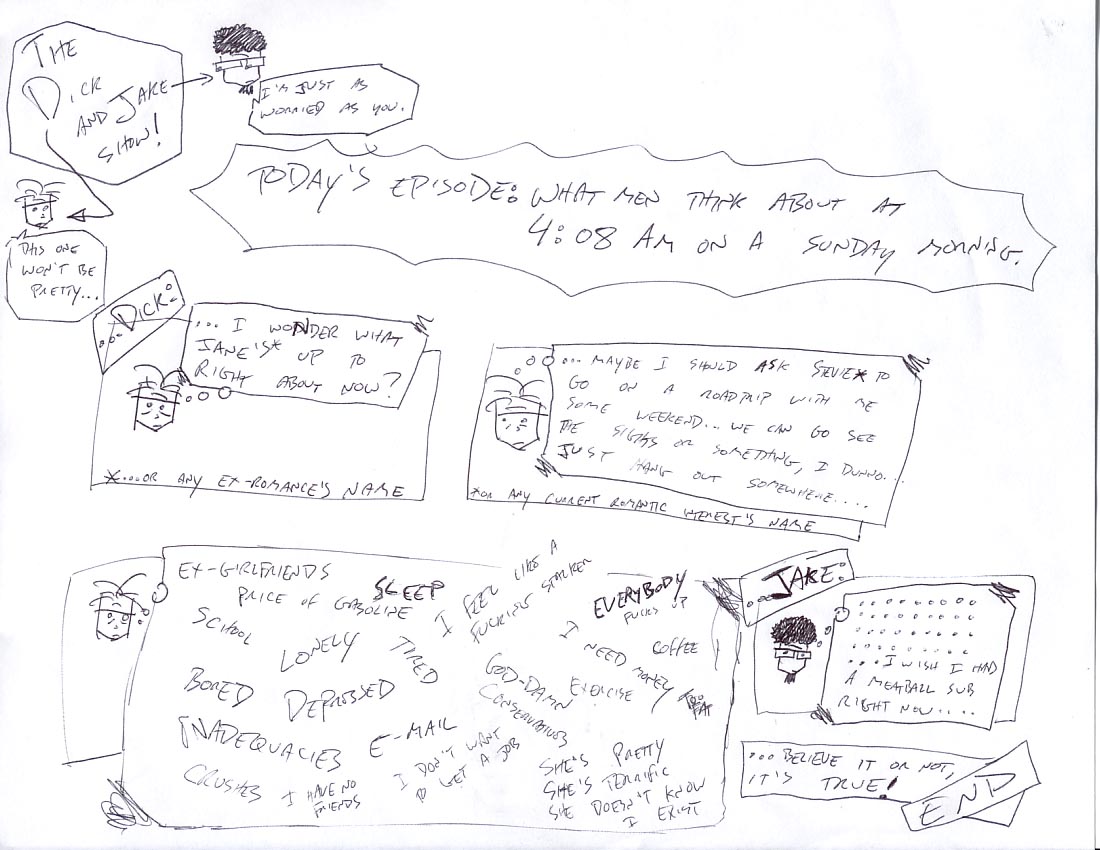 THE
DICK
AND JAKE
SHOW!
I'M JUST AS
WORRIED AS YOU.
THIS ONE
WON'T BE
PRETTY...
TODAY'S EPISODE: WHAT MEN THINK ABOUT AT
4:08 AM ON A SUNDAY MORNING.
...DICK:
... I WONDER WHAT
JANE'S* UP TO
RIGHT ABOUT NOW?
*...OR ANY EX-ROMANCE'S NAME
... MAYBE I SHOULD ASK STEVIE* TO
GO ON A ROADTRIP WITH ME
SOME WEEKEND... WE CAN GO SEE
THE SIGHTS OR SOMETHING, I DUNNO...
JUST HANG OUT SOMEWHERE....
*OR ANY CURRENT ROMANTIC INTEREST'S NAME
EX-GIRLFRIENDS
PRICE OF GASOLINE
SLEEP
I FEEL LIKE A
FUCKING STALKER
EVERYBODY
FUCKS UP
SCHOOL
LONELY
TIRED
I NEED MONEY
COFFEE
BORED
DEPRESSED
GOD-DAMN
CONSERVATIVES
EXERCISE
TOO
FAT
INADEQUACIES
E-MAIL
CRUSHES
I HAVE NO
FRIENDS
I DON'T WANT
TO GET A JOB
SHE'S PRETTY
SHE'S TERRIFIC
SHE DOESN'T KNOW
I EXIST
...JAKE:
.... I WISH I HAD
A MEATBALL SUB
RIGHT NOW....
... BELIEVE IT OR NOT,
IT'S TRUE!
END